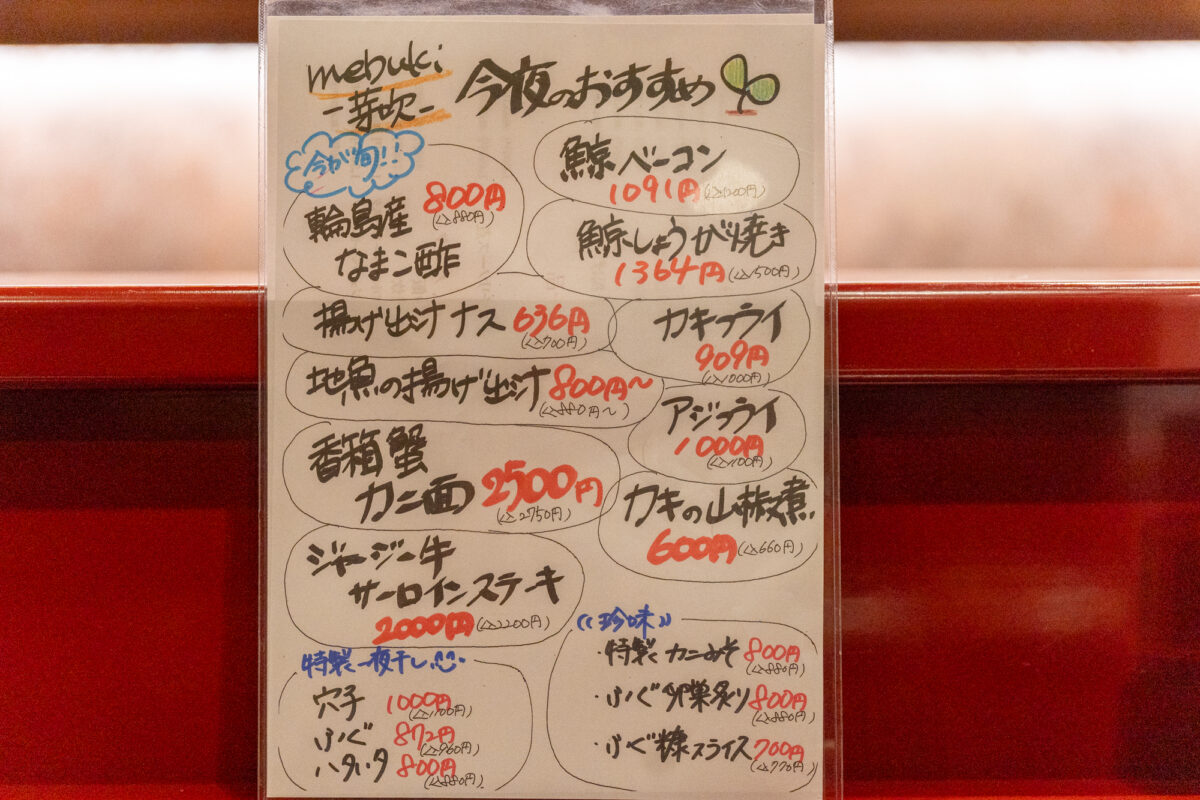 mebuki
-芽吹-
今夜のおすすめ
今が旬!!
輪島産
800円
(込880円)
なまこ酢
鯨ベーコン
1091円(込1200円)
鯨しょうが焼き
1364円(込1500円)
揚げ出汁ナス 636円
(込700円)
カキフライ
909円
(込1000円)
地魚の揚げ出汁 800円~
(込880円~)
アジフライ
1000円
(込1100円)
香箱蟹
カニ面 2500円
(込2750円)
カキの山椒煮
600円(込660円)
ジャージー牛
サーロインステーキ
2000円(込2200円)
特製一夜干し
穴子 1000円
(込1100円)
ふぐ 872円
(込960円)
ハタハタ 800円
(込880円)
((珍味))
・特製カニみそ 800円
(込880円)
・ふぐ卵巣炙り 800円
(込880円)
・ふぐ糠スライス 700円
(込770円)